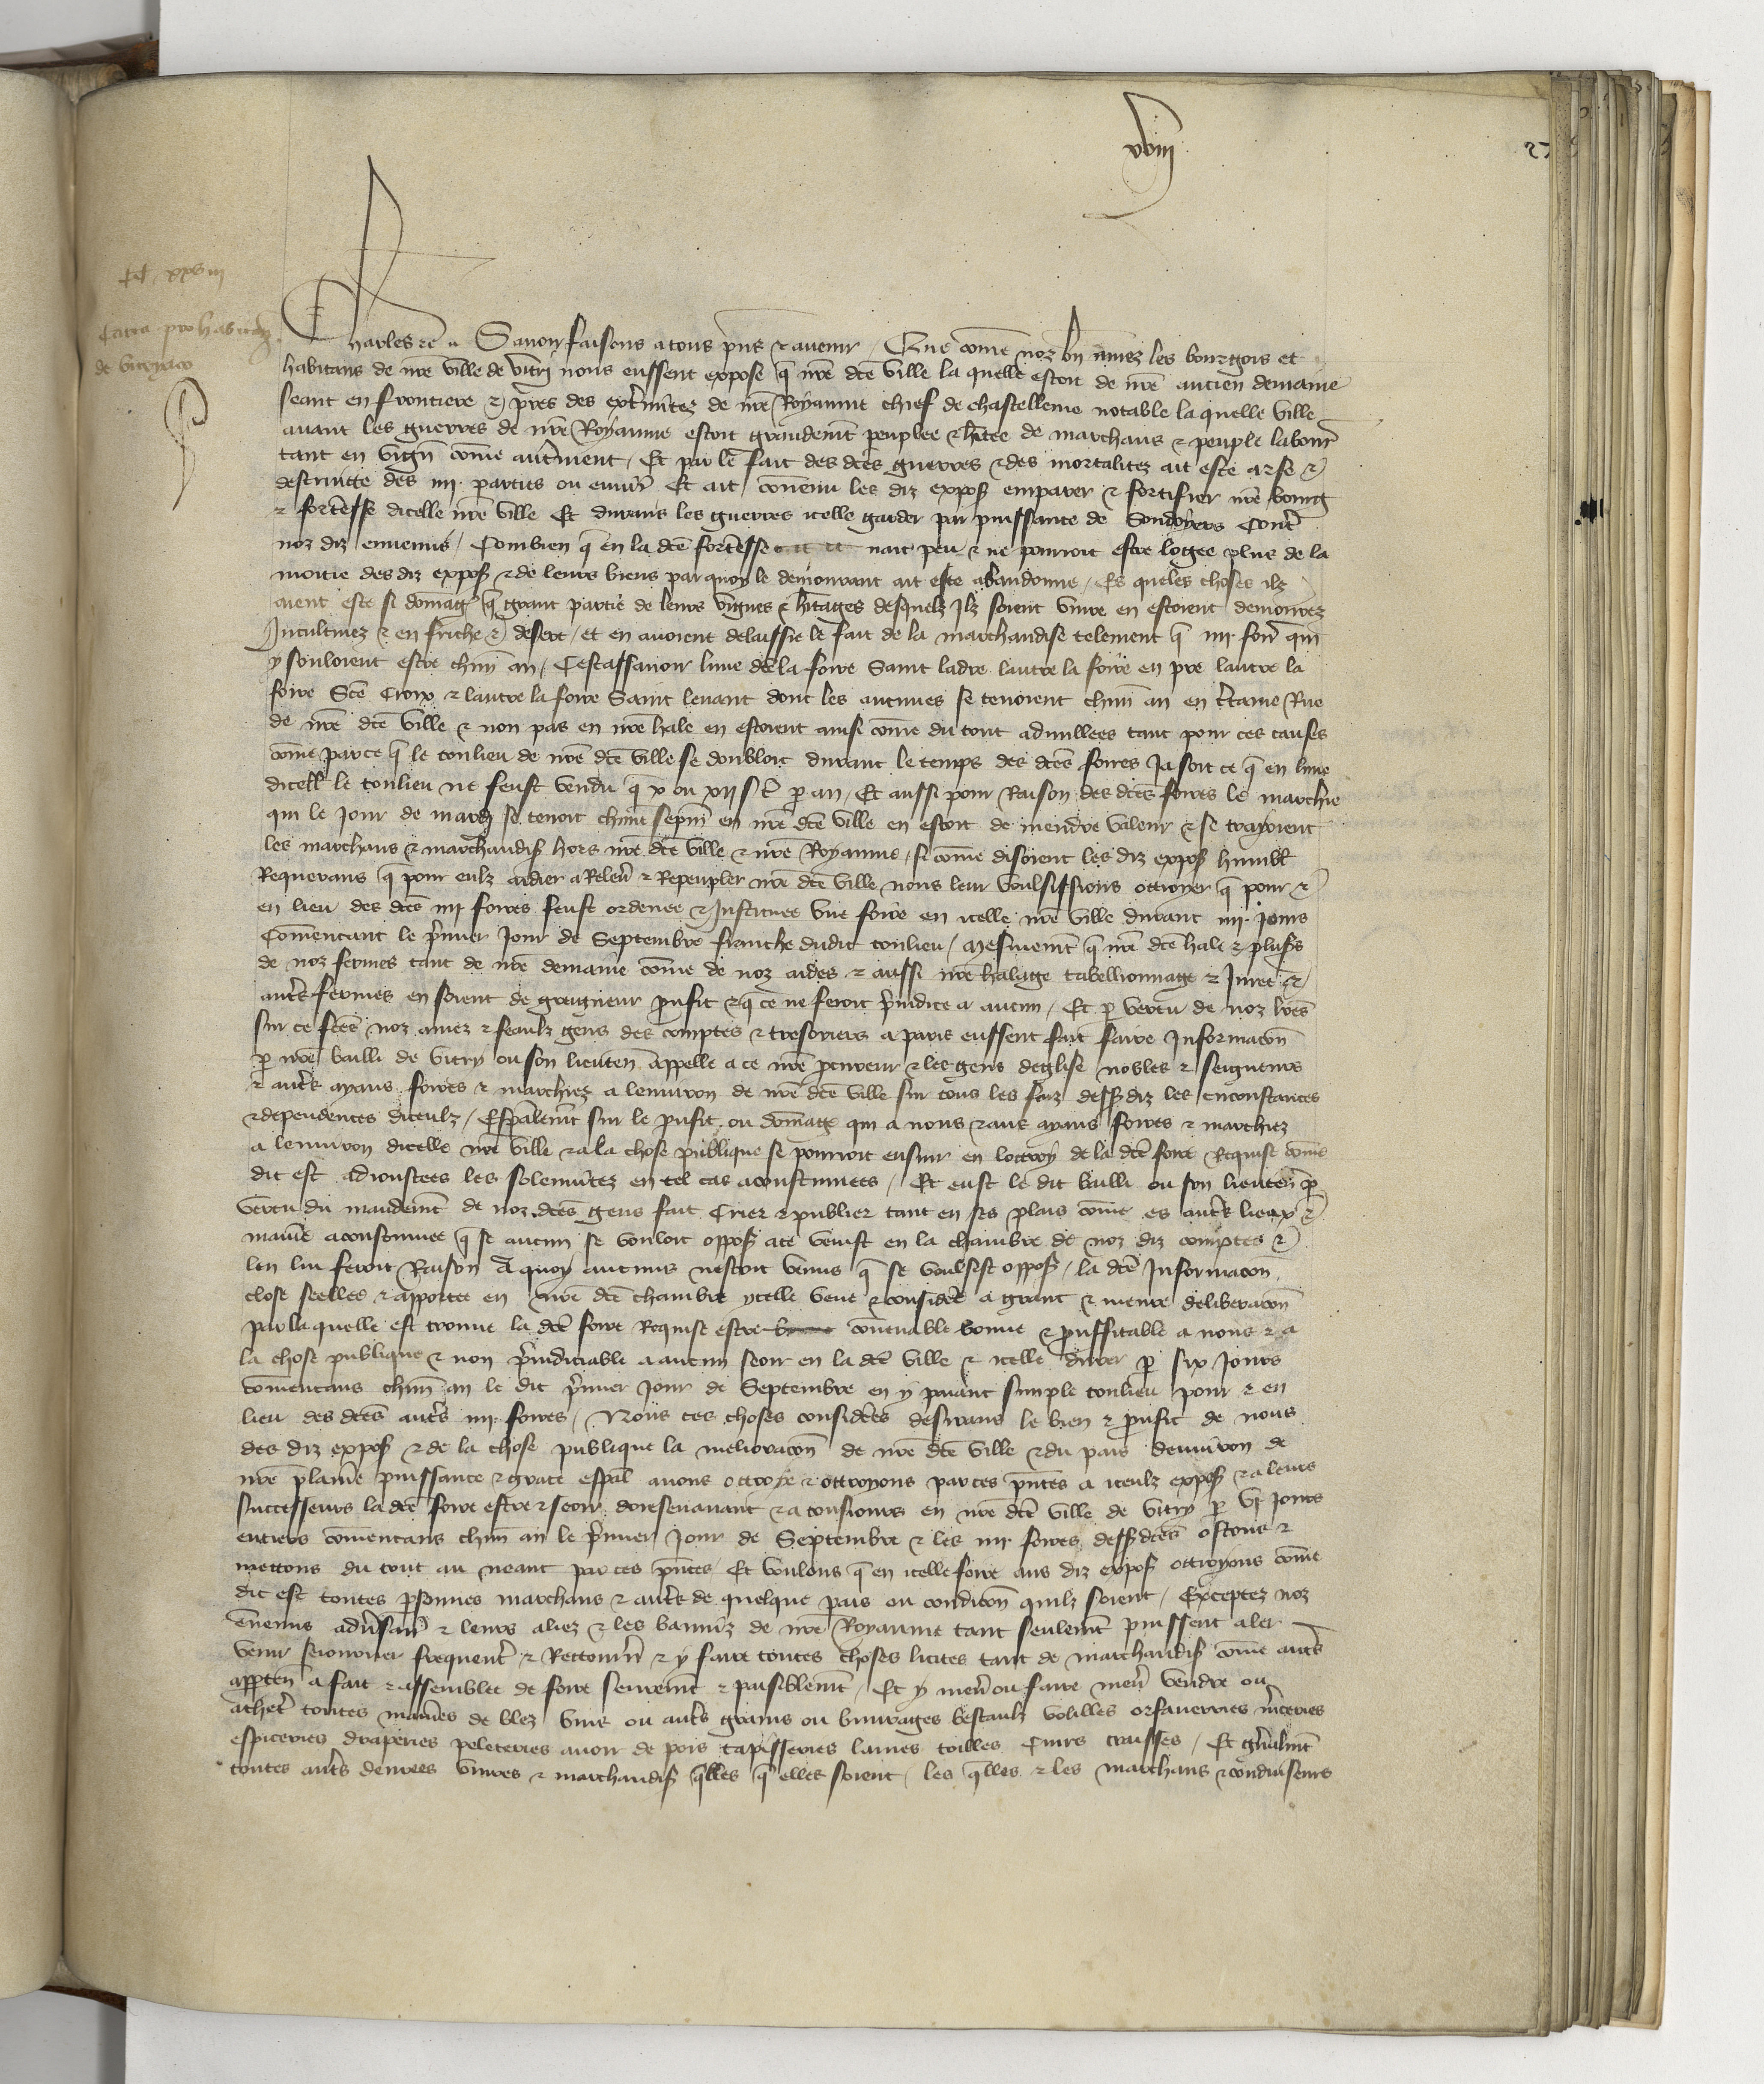 xviij
27
Carta pro habitan
de vitryaco
Charles zc a Savoir faisons a tous pñs z avenir / Que come noz bn amez les bourgois et
habitans de nre ville de vitry nous eussent expose q̃ nre dce ville la quelle estoit de nre ancien demaine
seant en frontiere z pres des extremitez de nre Royaume chief de chastellenie notable la quelle ville
avant les guerres de nre Royaume estoit grandemt peuplee z hitee de marchans z peuple labour
tant en vign come autrement / Et par le fait des dces guerres z des mortalitez ait este arse z
destruitte des iiij parties ou envir Et ait convenu les diz expos emparer z fortifier nre bourg
z forteresse dicelle nre ville Et durans les guerres icelle garder par puissance de Soudoyers Contr
noz diz ennemis / Combien q̃ en la dce forteresse nait peu z ne pourroit estre logee plus de la
moitie des diz expos z de leurs biens par quoy le demourant ait este abandonne / Es queles choses ilz
aient este si domag q̃ grant partie de leurs vignes z hitages desquelz Ilz soient vivre en estoient demourez
Incultivez z en friche z desert / et en avoient delaissie le fait de la marchandise telement q̃ iiij foir qui
y souloient estre chun an / Cestassavoir lune dela foire Saint ladre lautre la foire en pre lautre la
foire Sce Croix z lautre la foire Saint levant dont les aucunes se tenoient chun an en ctaine Rue
de nre dce ville z non pas en nre hale en estoient ainsi come du tout adnullees tant pour ces causes
come parce q̃ le tonlieu de nre dce ville se doubloit durant le temps des dces foires Ja soit ce q̃ en lune
dicell le tonlieu ne feust vendu q̃ x ou xij s t p an / Et aussi pour Raison des dces foires le marchie
qui le Jour de mard se tenoit chune sepm en nre dce ville en estoit de mendre valeur z se trayoient
les marchans z marchandis hors nre dce ville z nre Royaume / si come disoient les diz expos humbl
Requerans q̃ pour eulz aidier a Relev z Repeupler nre dce ville nous leur voulsissions ottroyer q̃ pour z
en lieu des dces iiij foires feust ordenee z Instituee une foire en icelle nre ville durant iiij Jours
Comencant le pmier Jour de Septembre franche dudit tonlieu / Mesmemt q̃ nre dce hale z plusrs
de noz fermes tant de nre demaine come de noz aides z aussi nre halage tabellionnage z Juree z
autrs fermes en soient de greigneur proufit z q̃ ce ne feroit pjudice a aucun / Et p vertu de noz lres
sur ce fces noz amez z feaulz gens des comptes z tresoriers a paris eussent fait faire Informacon
p nre bailli de vitry ou son lieuten appelle a ce nre pcureur z les gens deglise nobles z seigneurs
z autrs ayans foires z marchiez a lenviron de nre dce ville sur tous les faiz dess diz les circonstances
z dependences diceulz / Espalemt sur le proufit ou domage qui a nous z aus ayans foires z marchiez
a lenviron dicelle nre ville z a la chose publique se pourroit ensuir en lottroy de la dce foire Requise come
dit est adioustees les solemnitez en tel cas acoustumees / Et eust le dit bailli ou son lieuten p
vertu du mandemt de noz dces gens fait Crier z publier tant en ses plais come es autrs lieux z
maniere acoustumee q̃ se aucun se vouloit oppos a ce venist en la chambre de noz diz comptes z
len lui feroit Raison A quoy aucuns nestoit venus q̃ se voulsist oppos / la dce Informacon
close seellee z apportee en nre dce chambre ycelle veue z consideree a grant z meure deliberacon
par la quelle est trouve la dce foire Requise estre convenable bonne z prouffitable a nous z a
la chose publique z non pjudiciable a aucun seoir en la dce ville z icelle durer p six Jours
comencans chun an le dit pmier Jour de Septembre en y paiant simple tonlieu pour z en
lieu des dces autrs iiij foires / Nous ces choses considees desirans le bien z proufit de nous
des diz expos z de la chose publique la melioracon de nre dce ville z du pais denviron de
nre plaine puissance z grace espal avons ottroye z ottroyons par ces pntes a iceulz expos z a leurs
successeurs la dce foire estre z seoir doresenavant z a tousiours en nre dce ville de vitry p vj Jours
entiers comencans chun an le pmier Jour de Septembre z les iiij foires dess dces ostons z
mettons du tout au neant par ces pntes / Et voulons q̃ en icelle foire aus diz expos ottroyons come
dit est toutes psonnes marchans z autrs de quelque pais ou condicon quilz soient / Exceptez noz
ennemis adversair z leurs aliez z les banniz de nre Royaume tant seulemt puissent aler
venir seiourner frequent z Rettourn z y faire toutes choses licites tant de marchandis come autrs
apparten a fait z assemblee de foire seuremt z paisiblemt / Et y men ou faire men vendre ou
achet toutes manies de blez vins ou autrs grains ou buvrages bestaulz volilles orfaverries merceries
espiceries draperies peleteries avoir de pois tapisseries laines toilles Cuirs craisses / Et gnalmt
toutes autrs denrees vivres z marchandis qlles q̃ elles soient / les qlles z les marchans z conduiseurs